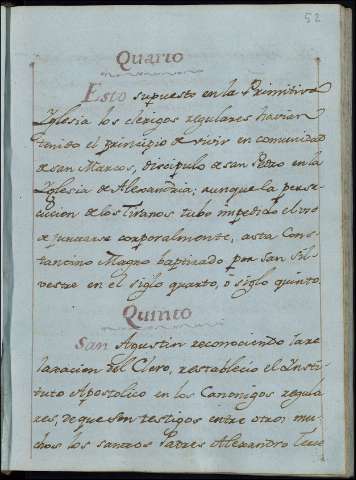 52
Quarto
Esto supuesto en la Primitiva
Yglesia los clerigos regulares havian
tenido el principio de vivir en comunidad
de san Marcos, discipulo de san Pedro en la
Yglesia de Alexandria; aunque la perse-
cucion de los Tiranos tubo impedido el uso
de juntarse corporalmente, asta Cons-
tancino Magno baptizado por San Sil-
vestre en el siglo quarto, o siglo quinto.
Quinto
San Agustin reconociendo la re-
laxacion del Clero, restablecio el Insti-
tuto Apostolico en los Canonigos regula-
res, de que son testigos entre otros mu-
chos los santos Padres Alexandro